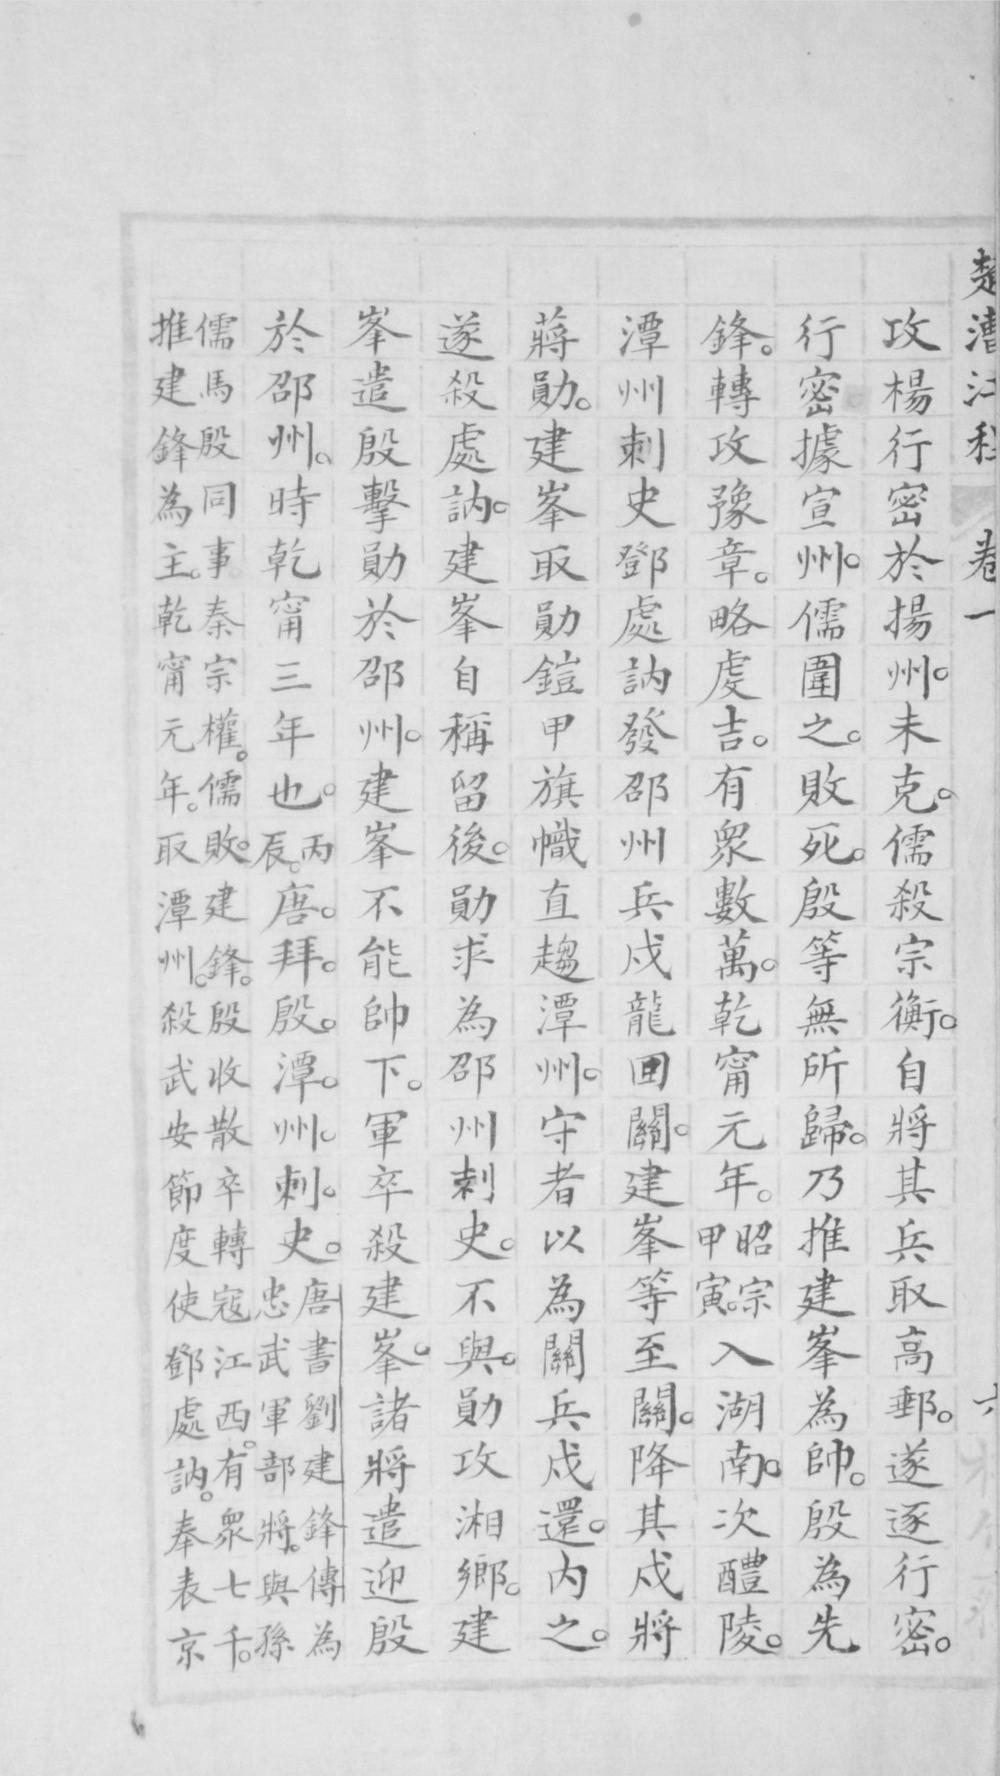 卷一
攻楊行密於揚州。未克。儒殺宗衡。自將其兵取高郵。遂逐行密。
行密據宣州。儒圍之。敗死。殷等無所歸。乃推建峯為帥。殷為先
鋒。轉攻豫章。略虔吉。有眾數萬。乾甯元年。昭宗甲寅。入湖南。次醴陵。
潭州刺史鄧處訥發邵州兵戍龍回關。建峯等至關。降其戍將
蔣勛。建峯取勛鎧甲旗幟直趨潭州。守者以為關兵戍還。內之。
遂殺處訥。建峯自稱留後。勛求為邵州刺史。不與。勛攻湘鄉。建
峯遣殷擊勛於邵州。建峯不能帥下。軍卒殺建峯。諸將遣迎殷
於邵州。時乾甯三年也。丙辰。唐。拜。殷。潭。州。刺。史。唐書劉建鋒傳為忠武軍部將。與孫
儒馬殷同事秦宗權。儒敗。建鋒。殷收散卒轉寇江西。有眾七千。
推建鋒為主。乾甯元年。取潭州。殺武安節度使鄧處訥。奉表京